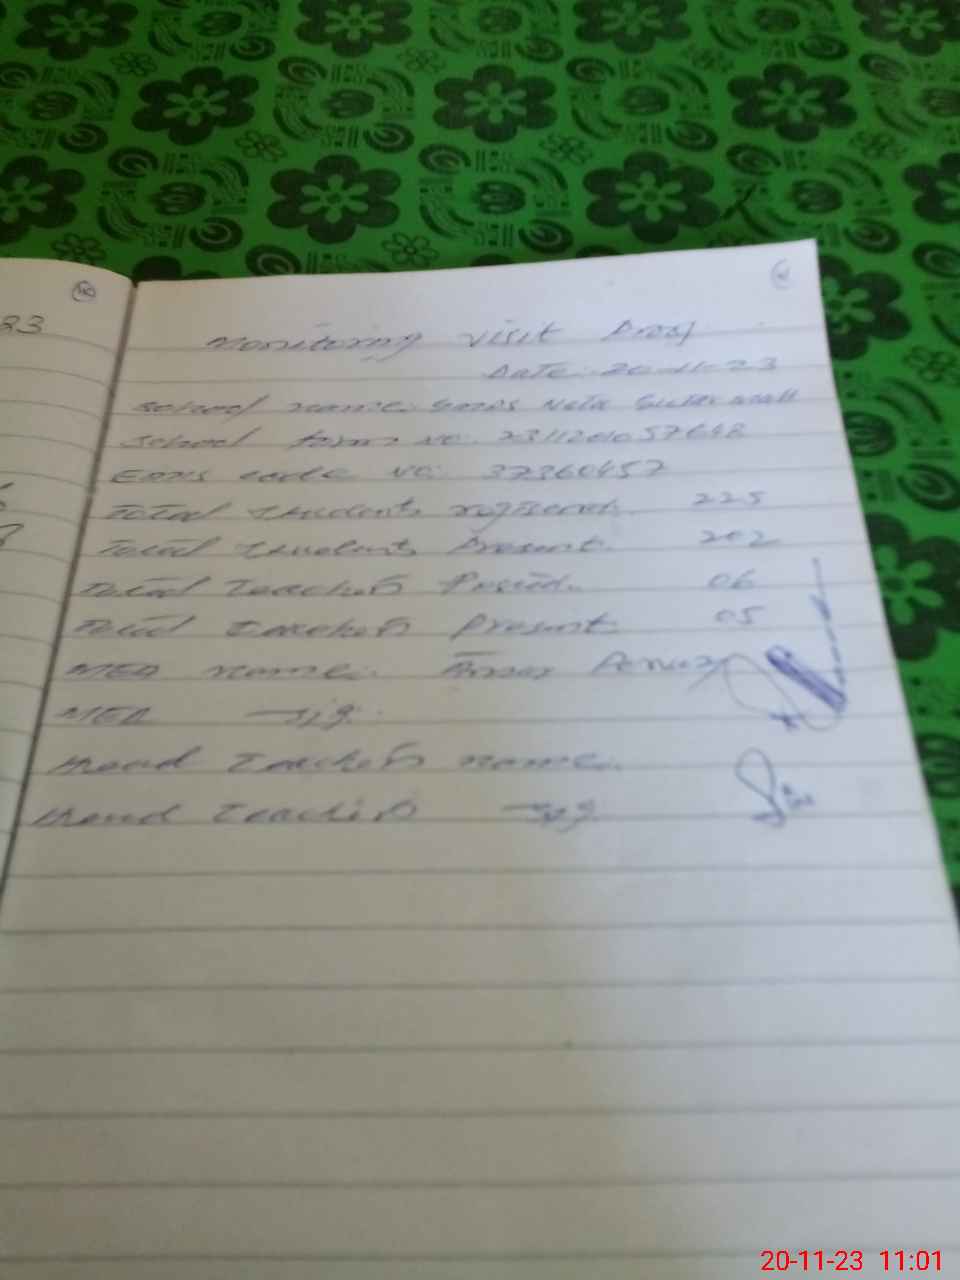 23
Monitoring Visit Proof
Date: 20-11-23
School name: GMPS
School form No: 2311201057648
EMIS code No: 37360457
Total Students registered. 225
Total Students Present. 202
Total Teachers Posted. 06
Total Teachers Present. 05
MEA name:
MEA Sig:
Head Teacher name:
Head Teacher Sig
20-11-23 11:01